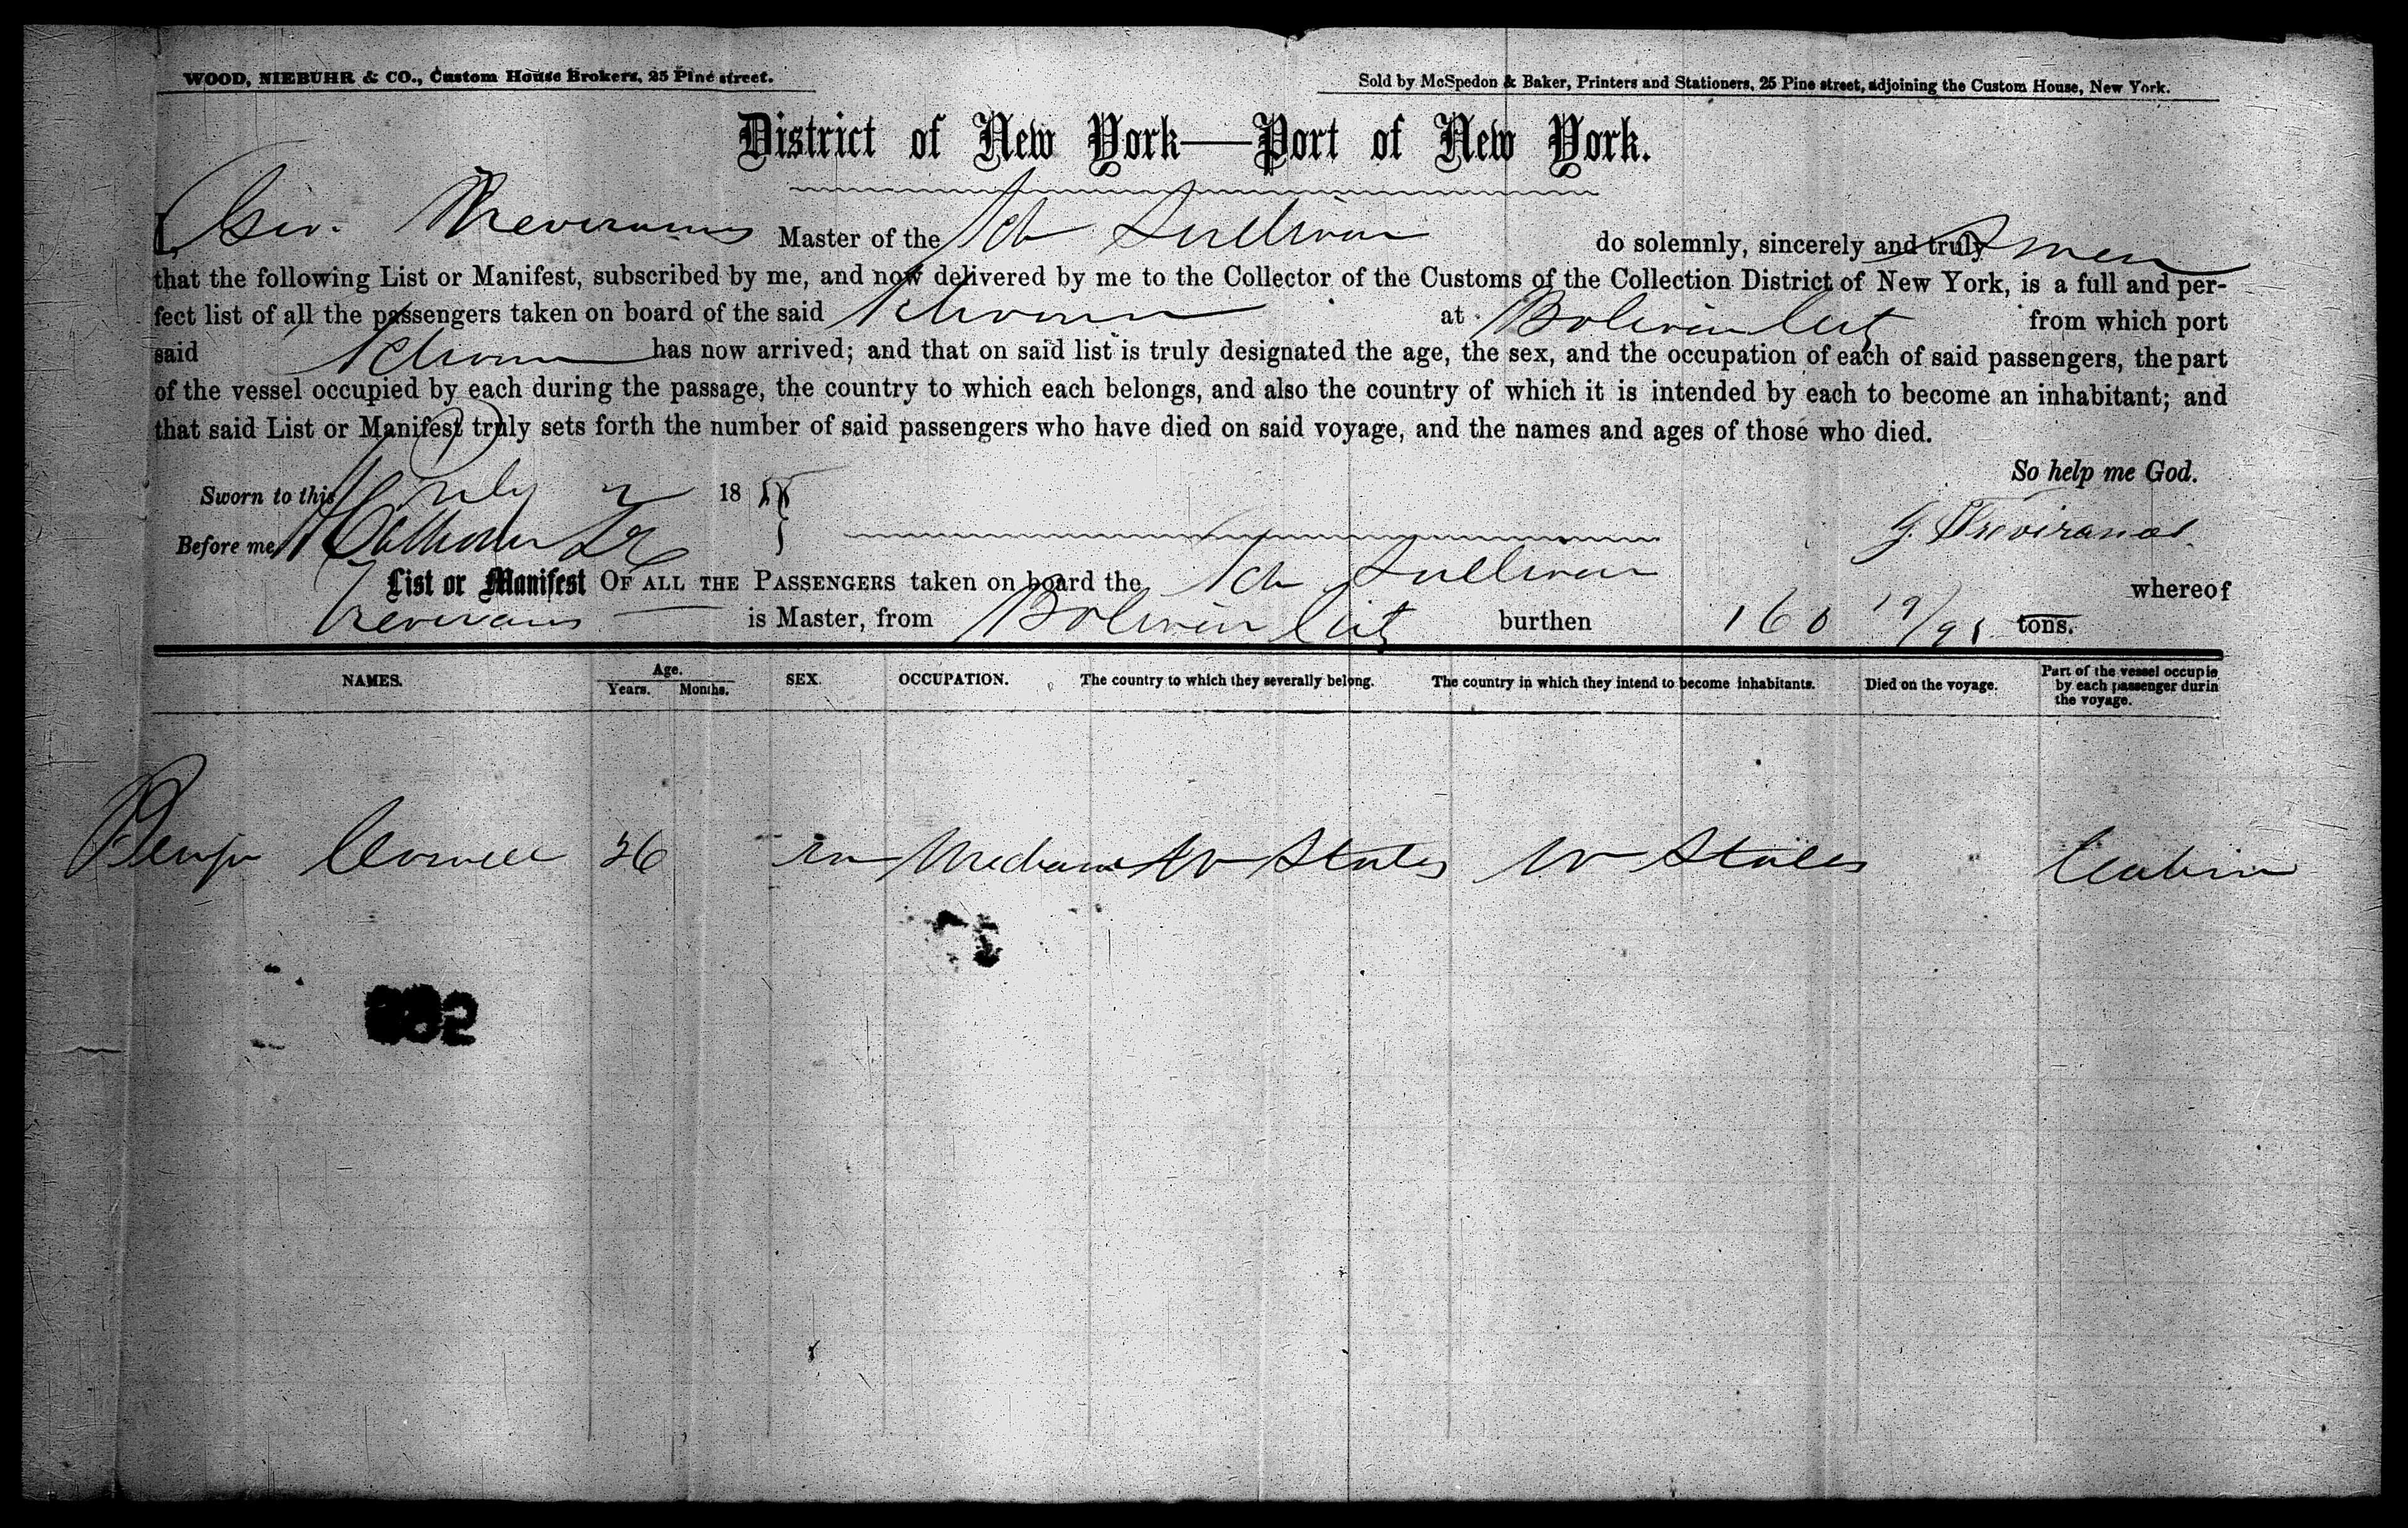 WOOD, NIEBUHR & CO., Custom House Brokers, 25 Pine street.
Sold by McSpedon & Baker, Printers and Stationers, 25 Pine street, adjoining the Custom House, New York.
District of New York—Port of New York.
I, Geo. Treviranus Master of the Sch Sullivan do solemnly, sincerely and truly swear
that the following List or Manifest, subscribed by me, and now delivered by me to the Collector of the Customs of the Collection District of New York, is a full and per-
fect list of all the passengers taken on board of the said Schooner at Bolivar City from which port
said Schooner has now arrived; and that on said list is truly designated the age, the sex, and the occupation of each of said passengers, the part
of the vessel occupied by each during the passage, the country to which each belongs, and also the country of which it is intended by each to become an inhabitant; and
that said List or Manifest truly sets forth the number of said passengers who have died on said voyage, and the names and ages of those who died.
So help me God.
Sworn to this July 2 1855
G. Treviranus
Before me
List or Manifest OF ALL THE PASSENGERS taken on board the Sch Sullivan whereof
Treviranus is Master, from Bolivar City burthen 160 19/95 tons.
NAMES. Age. Years. Months. SEX. OCCUPATION. The country to which they severally belong. The country in which they intend to become inhabitants. Died on the voyage. Part of the vessel occupie by each passenger durin the voyage.
Benjn 26 m Mechanic U States U States Cabin